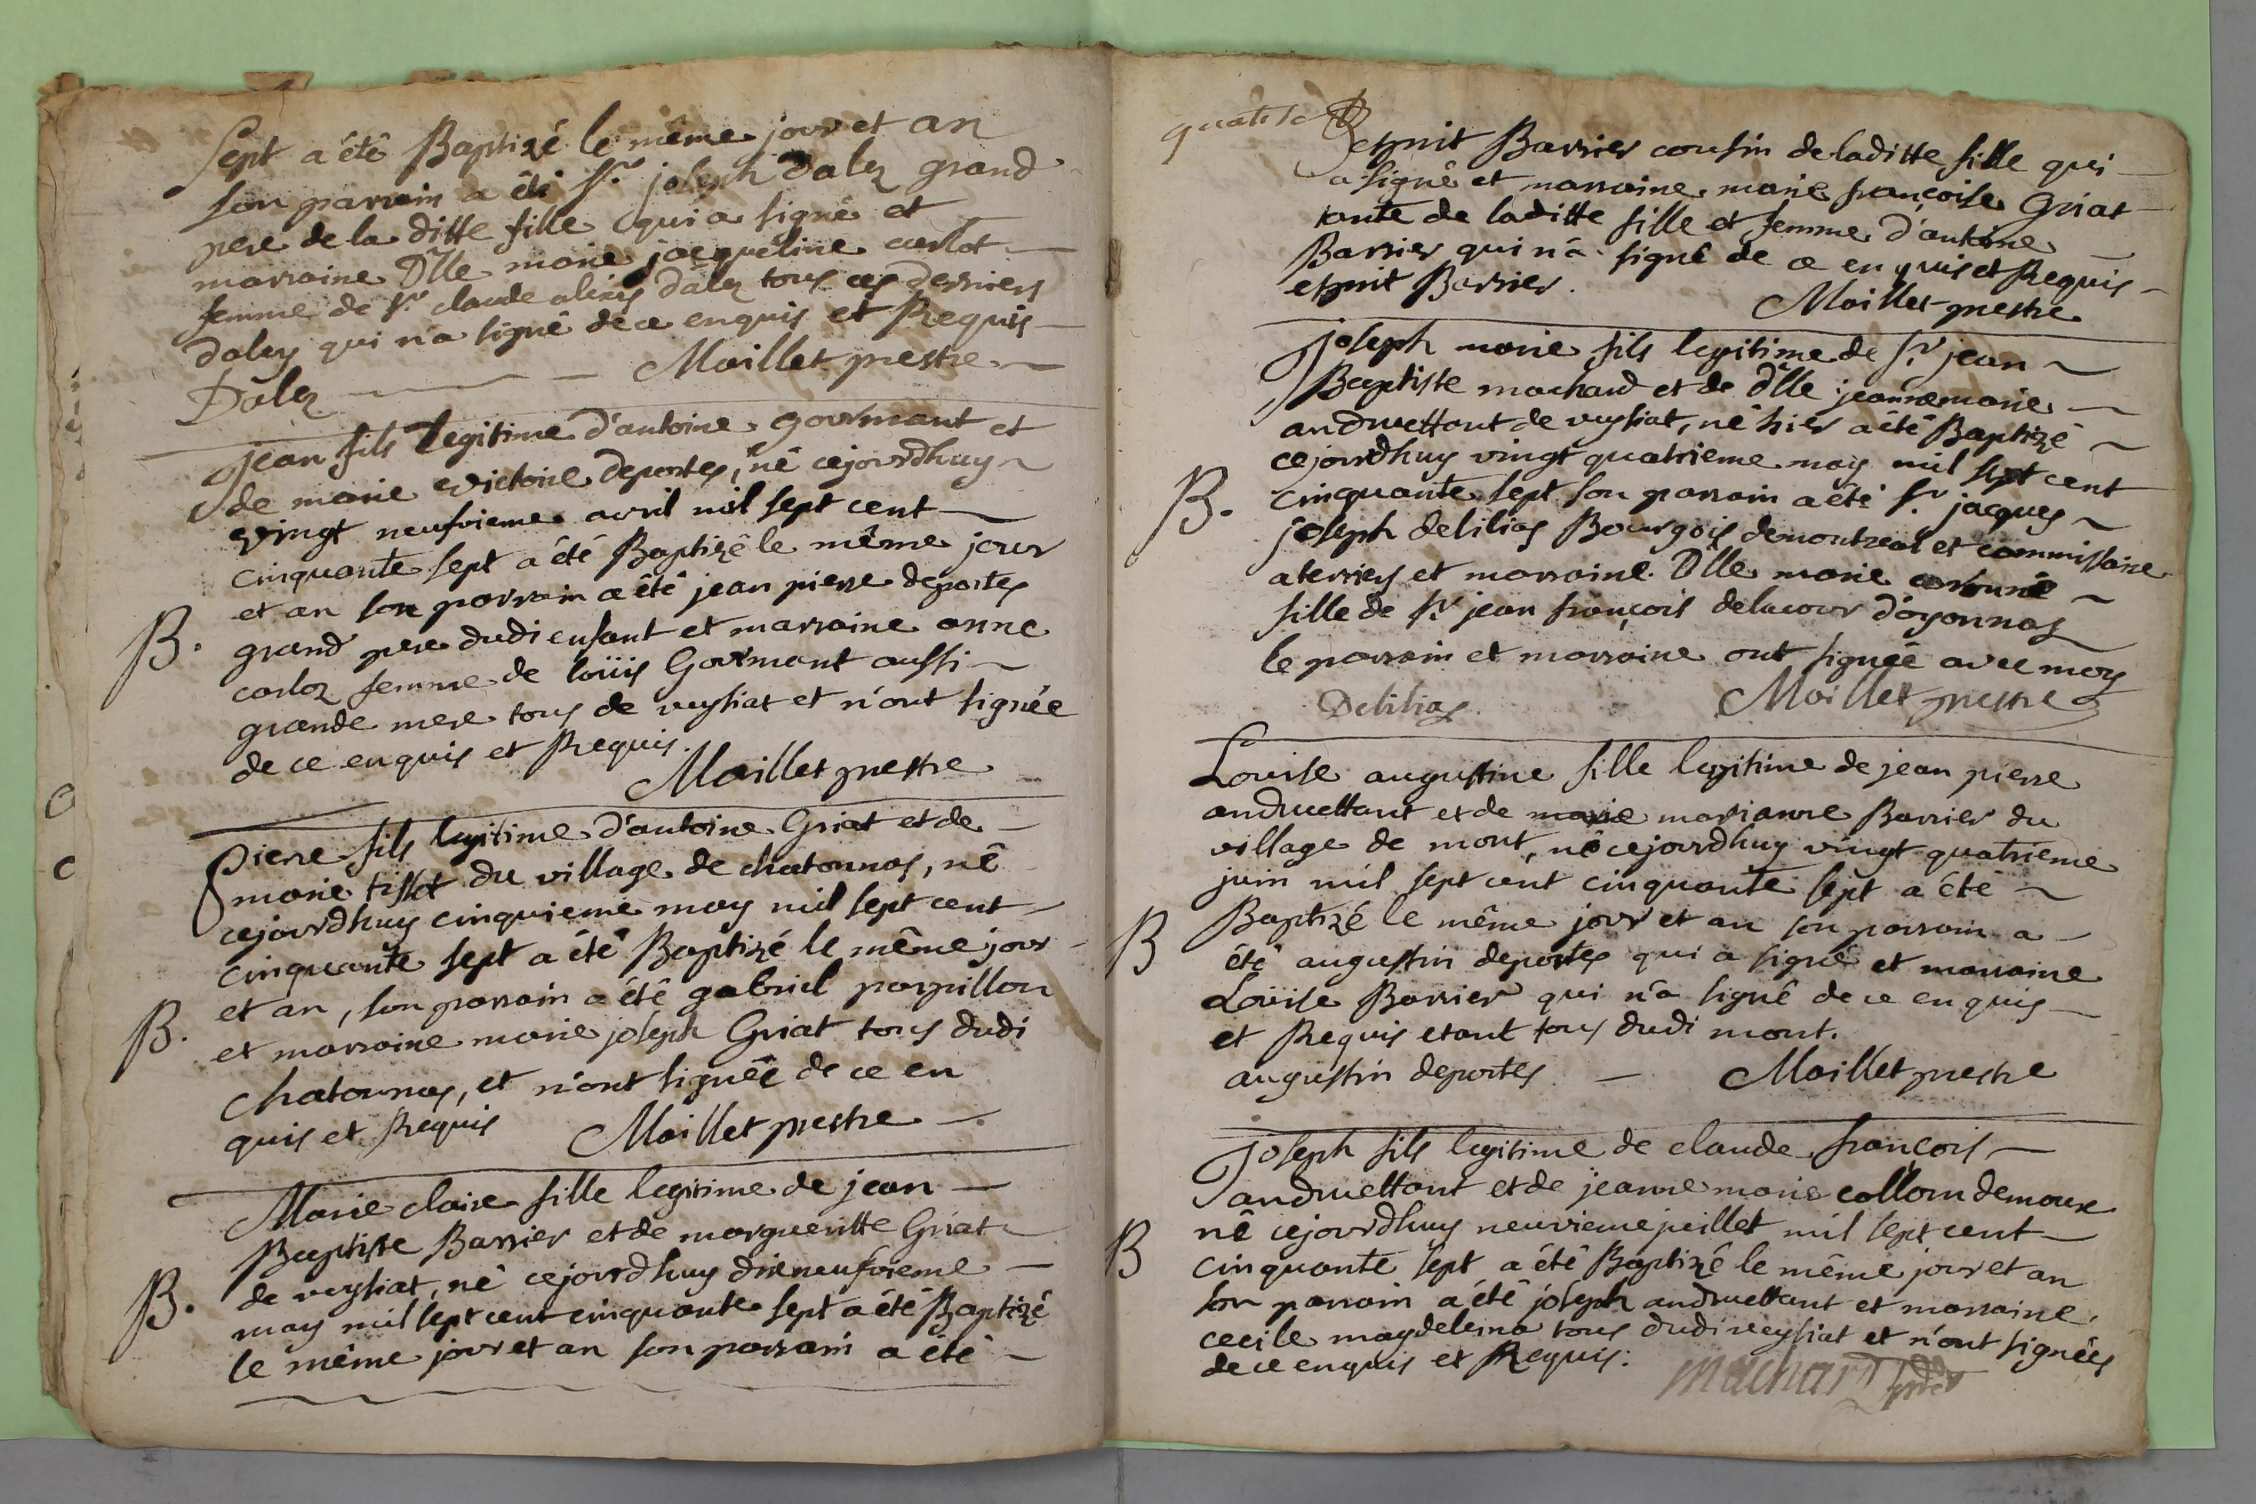 Sept a été Baptizé le même jour et an
son parrain a été Sr. joseph Dalez grand
pere de la ditte fille qui a signé et
marraine Dlle marie jacqueline carlot
femme de Sr. claude alexis Dalez tous ces derniers
daley qui n'a signé de ce enquis et Requis
Dalez Maillet prestre
jean fils legitime d'antoine gourmant et
de marie victoire deportes, né cejourdhuy
vingt neufvieme avril mil sept cent
cinquante sept a été Baptizé le même jour
et an son parrain a été jean pierre deportes
B. grand pere dudi enfant et marraine anne
carloz femme de loüis Gourmant aussi
grande mere tous de veysiat et n'ont signée
de ce enquis et Requis.
Maillet prestre
Pierre fils legitime d'antoine Griat et de
marie tissot du village de chatonnas, né
cejourdhuy cinquieme may mil sept cent
cinquante sept a été Baptizé le même jour
et an, son parrain a été gabriel parpillon
B. et marraine marie joseph Griat tous dudi
Chatonnas, et n'ont signée de ce en
quis et Requis Maillet prestre
Marie claire fille legitime de jean
Baptiste Barrier et de margueritte Griat
de veysiat, né cejourdhuy dixneufvieme
B. may mil sept cent cinquante sept a été Baptizé
le même jour et an son parrain a été
quatre
esprit Barrier cousin de laditte fille qui
a signé et marraine marie françoise Griat
tante de laditte fille et femme d'antoine
Barrier qui n'a signé de ce enquis et Requis
esprit Barrier. Maillet prestre
joseph marie fils legitime de Sr. jean
Baptiste machard et de Dlle jeanne marie
andruettant de veysiat, né hier a été Baptizé
cejourdhuy vingt quatrieme may mil sept cent
B. cinquante sept son parrain a été Sr. jacques
joseph delilias Bourgois de montreal et commissaire
a terriers et marraine Dlle marie
fille de Sr. jean françois delacour d'oyonnas
le parrain et marraine ont signée avec moy
Delilias Maillet prestre
Louise augustine fille legitime de jean pierre
andruettant et de marie marianne Barrier du
village de mont, né cejourdhuy vingt quatrieme
juin mil sept cent cinquante sept a été
B Baptizé le même jour et an son parrain a
été augustin deportes qui a signé et marraine
Loüise Barrier qui n'a signé de ce enquis
et Requis etant tous dudi mont.
augustin deportes Maillet prestre
joseph fils legitime de claude françois
andruettant et de jeanne marie collom demoux
B né cejourdhuy neuvieme juillet mil sept cent
cinquante sept a été Baptizé le même jour et an
son parrain a été joseph andruettant et marraine
cecile maydelena tous dudi veysiat et n'ont signées
de ce enquis et Requis:
Machard